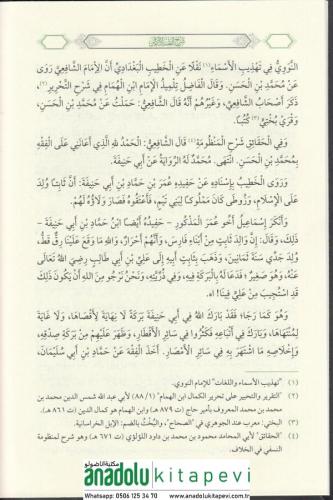 النَّوَوِيُّ فِي تَهْذِيبِ الْأَسْمَاءِ(١) نَقْلًا عَنِ الْخَطِيبِ الْبَغْدَادِيِّ أَنَّ الْإِمَامَ الشَّافِعِيَّ رَوَى
عَنْ مُحَمَّدِ بْنِ الْحَسَنِ. وَقَالَ الْفَاضِلُ تِلْمِيذُ الْإِمَامِ ابْنِ الْهُمَامِ فِي شَرْحِ التَّحْرِيرِ(٢):
ذَكَرَ أَصْحَابُ الشَّافِعِيِّ، وَغَيْرُهُمْ أَنَّهُ قَالَ الشَّافِعِيُّ: حَمَلْتُ عَنْ مُحَمَّدِ بْنِ الْحَسَنِ،
وَقْرَيْ بُخْتِيٍّ(٣) كُتُبًا.
وَفِي الْحَقَائِقِ شَرْحِ الْمَنْظُومَةِ(٤) قَالَ الشَّافِعِيُّ: الْحَمْدُ لِلَّهِ الَّذِي أَعَانَنِي عَلَى الْفِقْهِ
بِمُحَمَّدِ بْنِ الْحَسَنِ. انْتَهَى. مُحَمَّدٌ لَهُ الرِّوَايَةُ عَنْ أَبِي حَنِيفَةَ.
وَرَوَى الْخَطِيبُ بِإِسْنَادِهِ عَنْ حَفِيدِهِ عُمَرَ بْنِ حَمَّادِ بْنِ أَبِي حَنِيفَةَ: أَنَّ ثَابِتًا وُلِدَ
عَلَى الْإِسْلَامِ، وَزُوطَى كَانَ مَمْلُوكًا لِبَنِي تَيْمٍ، فَأَعْتَقُوهُ فَصَارَ وَلَاؤُهُ لَهُمْ.
وَأَنْكَرَ إِسْمَاعِيلُ أَخُو عُمَرَ الْمَذْكُورِ - حَفِيدُهُ أَيْضًا ابْنُ حَمَّادِ بْنِ أَبِي حَنِيفَةَ -
ذَلِكَ، وَقَالَ: إِنَّ وَالِدَ ثَابِتٍ مِنْ أَبْنَاءِ فَارِسَ، وَأَنَّهُمْ أَحْرَارٌ، وَاللَّهِ مَا وَقَعَ عَلَيْنَا رِقٌّ قَطُّ،
وُلِدَ جَدِّي سَنَةَ ثَمَانِينَ، وَذَهَبَ ثَابِتٌ أَبِيهِ إِلَى عَلِيِّ بْنِ أَبِي طَالِبٍ رَضِيَ اللَّهُ تَعَالَى
عَنْهُ، وَهُوَ صَغِيرٌ؛ فَدَعَا لَهُ بِالْبَرَكَةِ فِيهِ، وَفِي ذُرِّيَّتِهِ، وَنَحْنُ نَرْجُو مِنَ اللَّهِ أَنْ يَكُونَ ذَلِكَ
قَدِ اسْتُجِيبَ مِنْ عَلِيٍّ فِينَا! اه.
وَهُوَ كَمَا رَجَا؛ فَقَدْ بَارَكَ اللَّهُ فِي أَبِي حَنِيفَةَ بَرَكَةً لَا نِهَايَةَ لِأَقْصَاهَا، وَلَا غَايَةَ
لِمُنْتَهَاهَا، وَبَارَكَ فِي أَتْبَاعِهِ فَكَثُرُوا فِي سَائِرِ الْأَقْطَارِ، وَظَهَرَ عَلَيْهِمْ مِنْ بَرَكَةِ صِدْقِهِ،
وَإِخْلَاصِهِ مَا اشْتَهَرَ بِهِ فِي سَائِرِ الْأَمْصَارِ. أَخَذَ الْفِقْهَ عَنْ حَمَّادِ بْنِ أَبِي سُلَيْمَانَ،
(١) "تهذيب الأسماء واللغات" للإمام النووي.
(٢) "التقرير والتحبير على تحرير الكمال ابن الهمام" (٨٨/١) لأبي عبد الله شمس الدين محمد بن
محمد بن محمد المعروف بأمير حاج (ت ٨٧٩ هـ) وابن الهمام هو كمال الدين (ت ٨٦١ هـ).
(٣) البختي: معرب عند الجوهري في "الصحاح"، والبُخْتُ بالضم: الإبل الخراسانية.
(٤) "الحقائق" لأبي المحامد محمود بن محمد بن داود اللؤلؤي (ت ٦٧١ هـ) وهو شرح لمنظومة
النسفي في الخلاف.
مكتبة الأناضولو
anadolu kitapevi
Whatsapp: 0506 125 34 70 www.anadolukitapevi.com